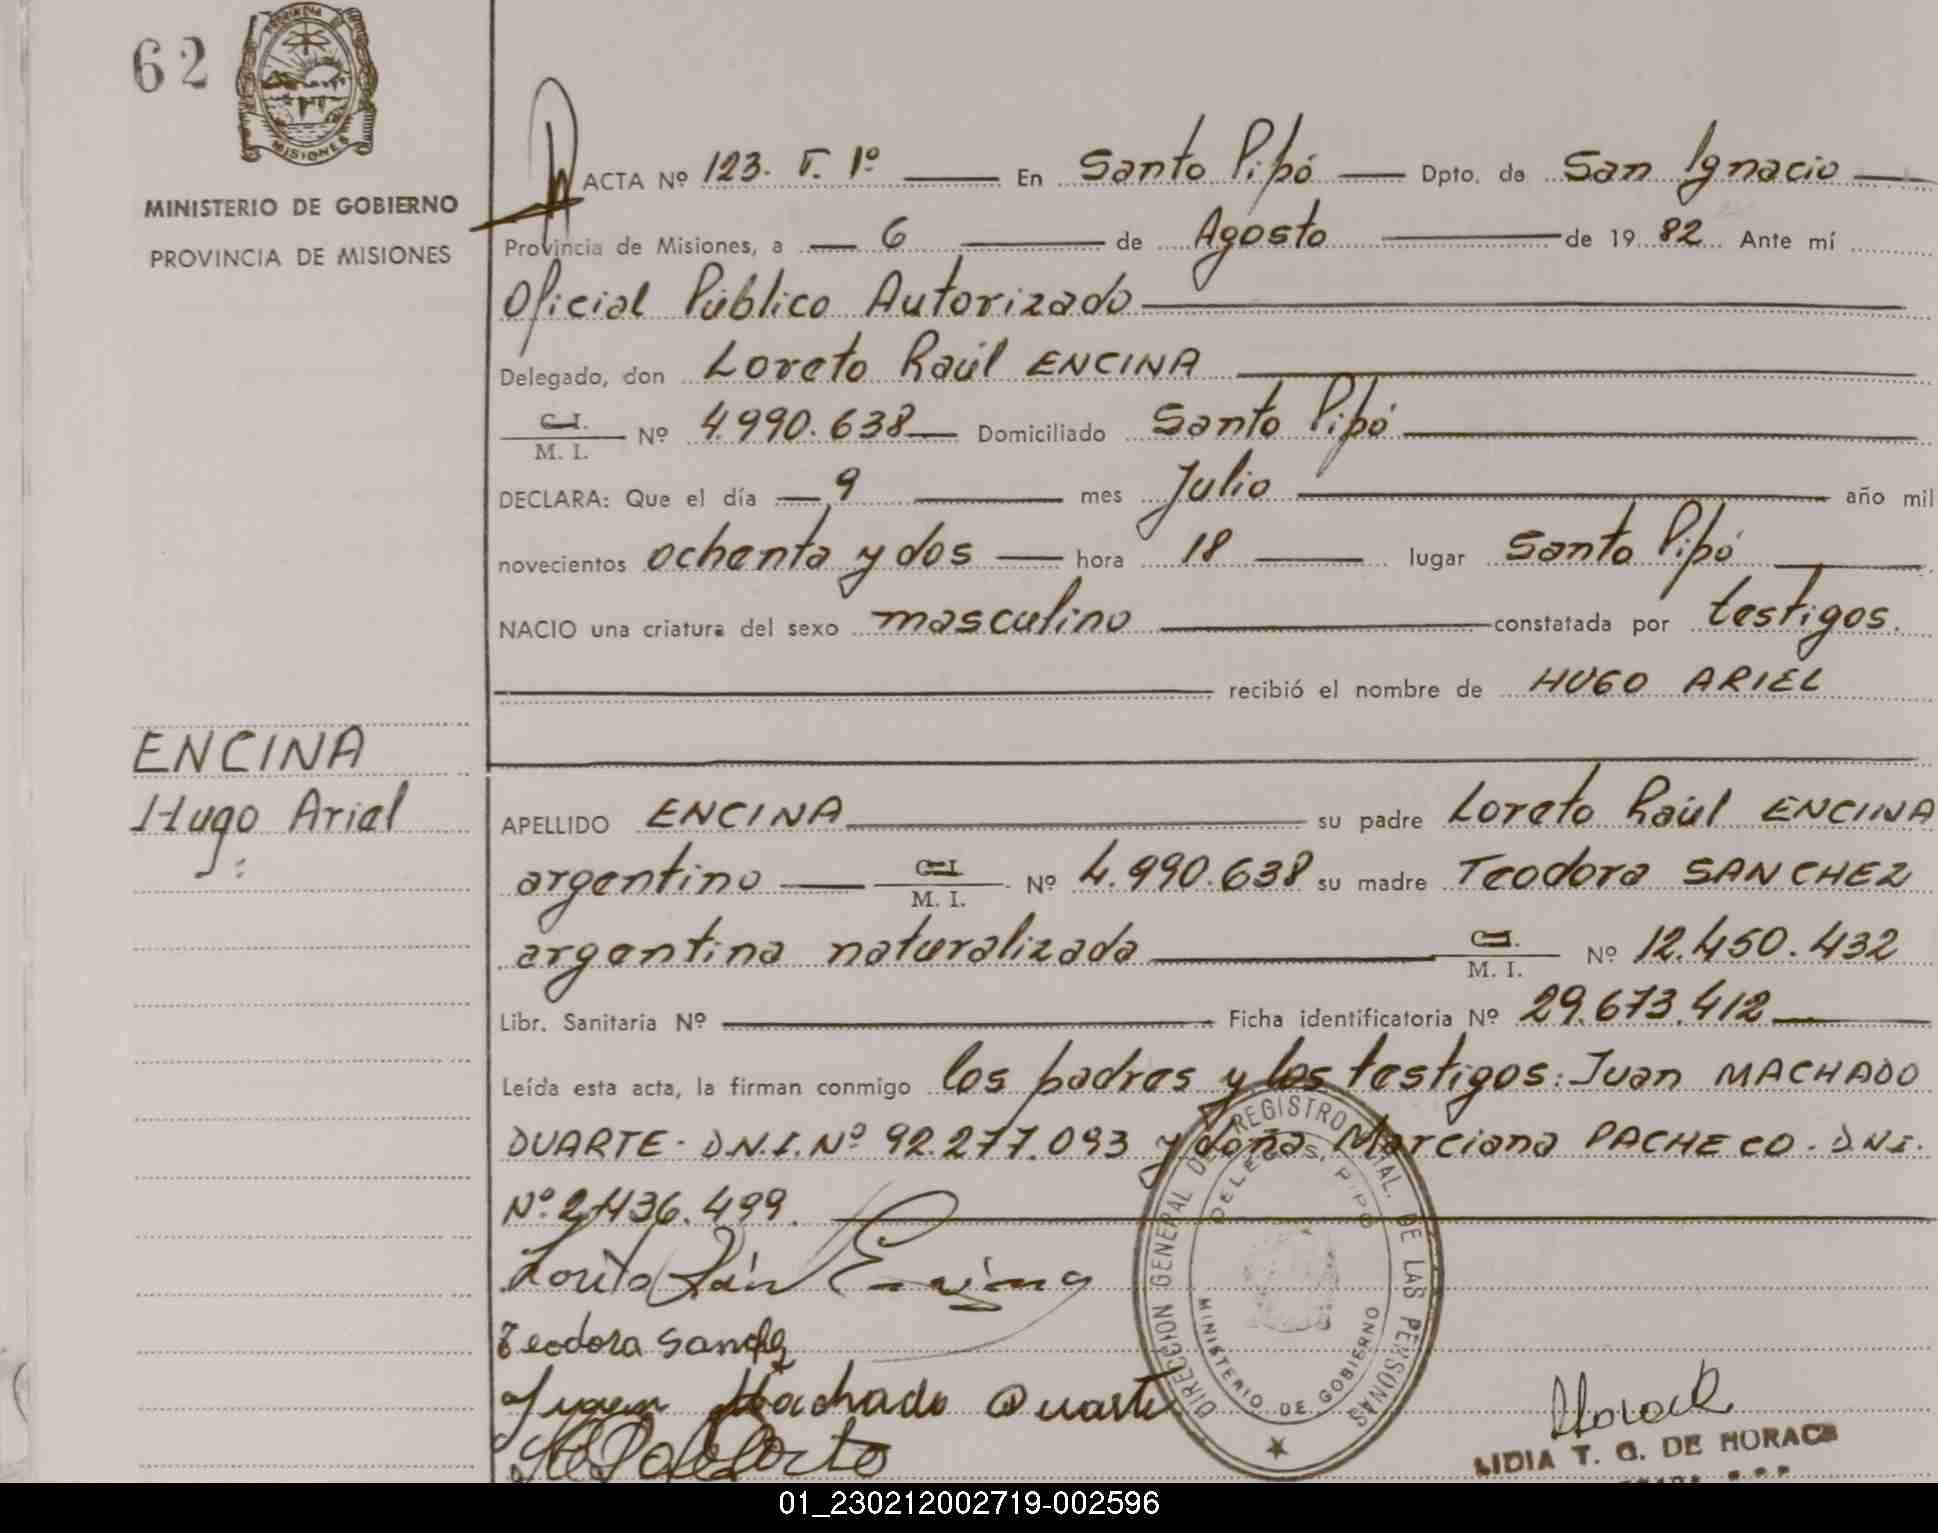 62
PROVINCIA DE
MISIONES
MINISTERIO DE GOBIERNO
PROVINCIA DE MISIONES
ACTA Nº 123. T. 1º En Santo Pipó Dpto. de San Ignacio
Provincia de Misiones, a 6 de Agosto de 1982 Ante mí
Oficial Público Autorizado
Delegado, don Loreto Raúl ENCINA
C. I.
M. I. Nº 4.990.638 Domiciliado Santo Pipó
DECLARA: Que el día 9 mes Julio año mil
novecientos ochenta y dos hora 18 lugar Santo Pipó
NACIO una criatura del sexo masculino constatada por testigos.
recibió el nombre de HUGO ARIEL
ENCINA
Hugo Ariel
APELLIDO ENCINA su padre Loreto Raúl ENCINA
argentino C. I.
M. I. Nº 4.990.638 su madre Teodora SANCHEZ
argentina naturalizada C. I.
M. I. Nº 12.450.432
Libr. Sanitaria Nº Ficha identificatoria Nº 29.673.412
Leída esta acta, la firman conmigo los padres y los testigos: Juan MACHADO
DUARTE - D.N.I. Nº 92.277.093 y doña Marciana PACHECO - D.N.I.
Nº 2.436.499.
Loreto Raúl Encina
Teodora Sanchez
Juan Machado Duarte
DIRECCION GENERAL DEL REGISTRO PROVINCIAL DE LAS PERSONAS
DELEG. S. PIPO
MINISTERIO DE GOBIERNO
LIDIA T. G. DE HORACK
01_230212002719-002596